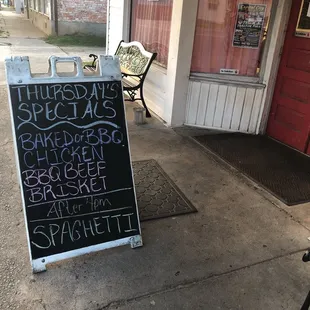 THURSDAYS
SPECIALS
BAKED OR BBQ
CHICKEN
BBQ BEEF
BRISKET
AFTER 4PM
SPAGHETTI